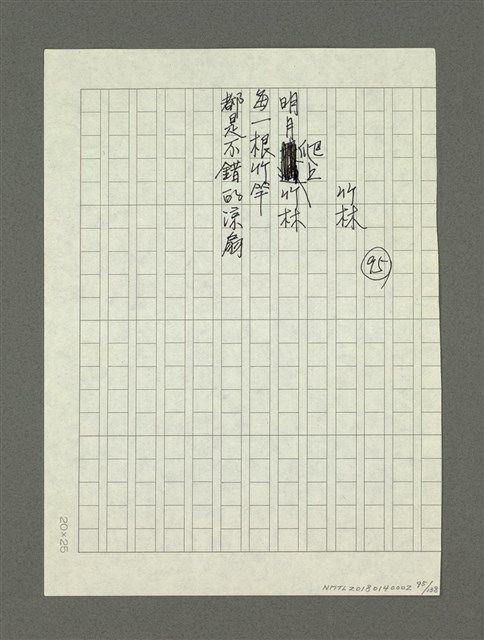 竹林
95
明月爬上竹林
每一根竹竿
都是不錯的涼扇
20×25
NMTL20180140002 95/188